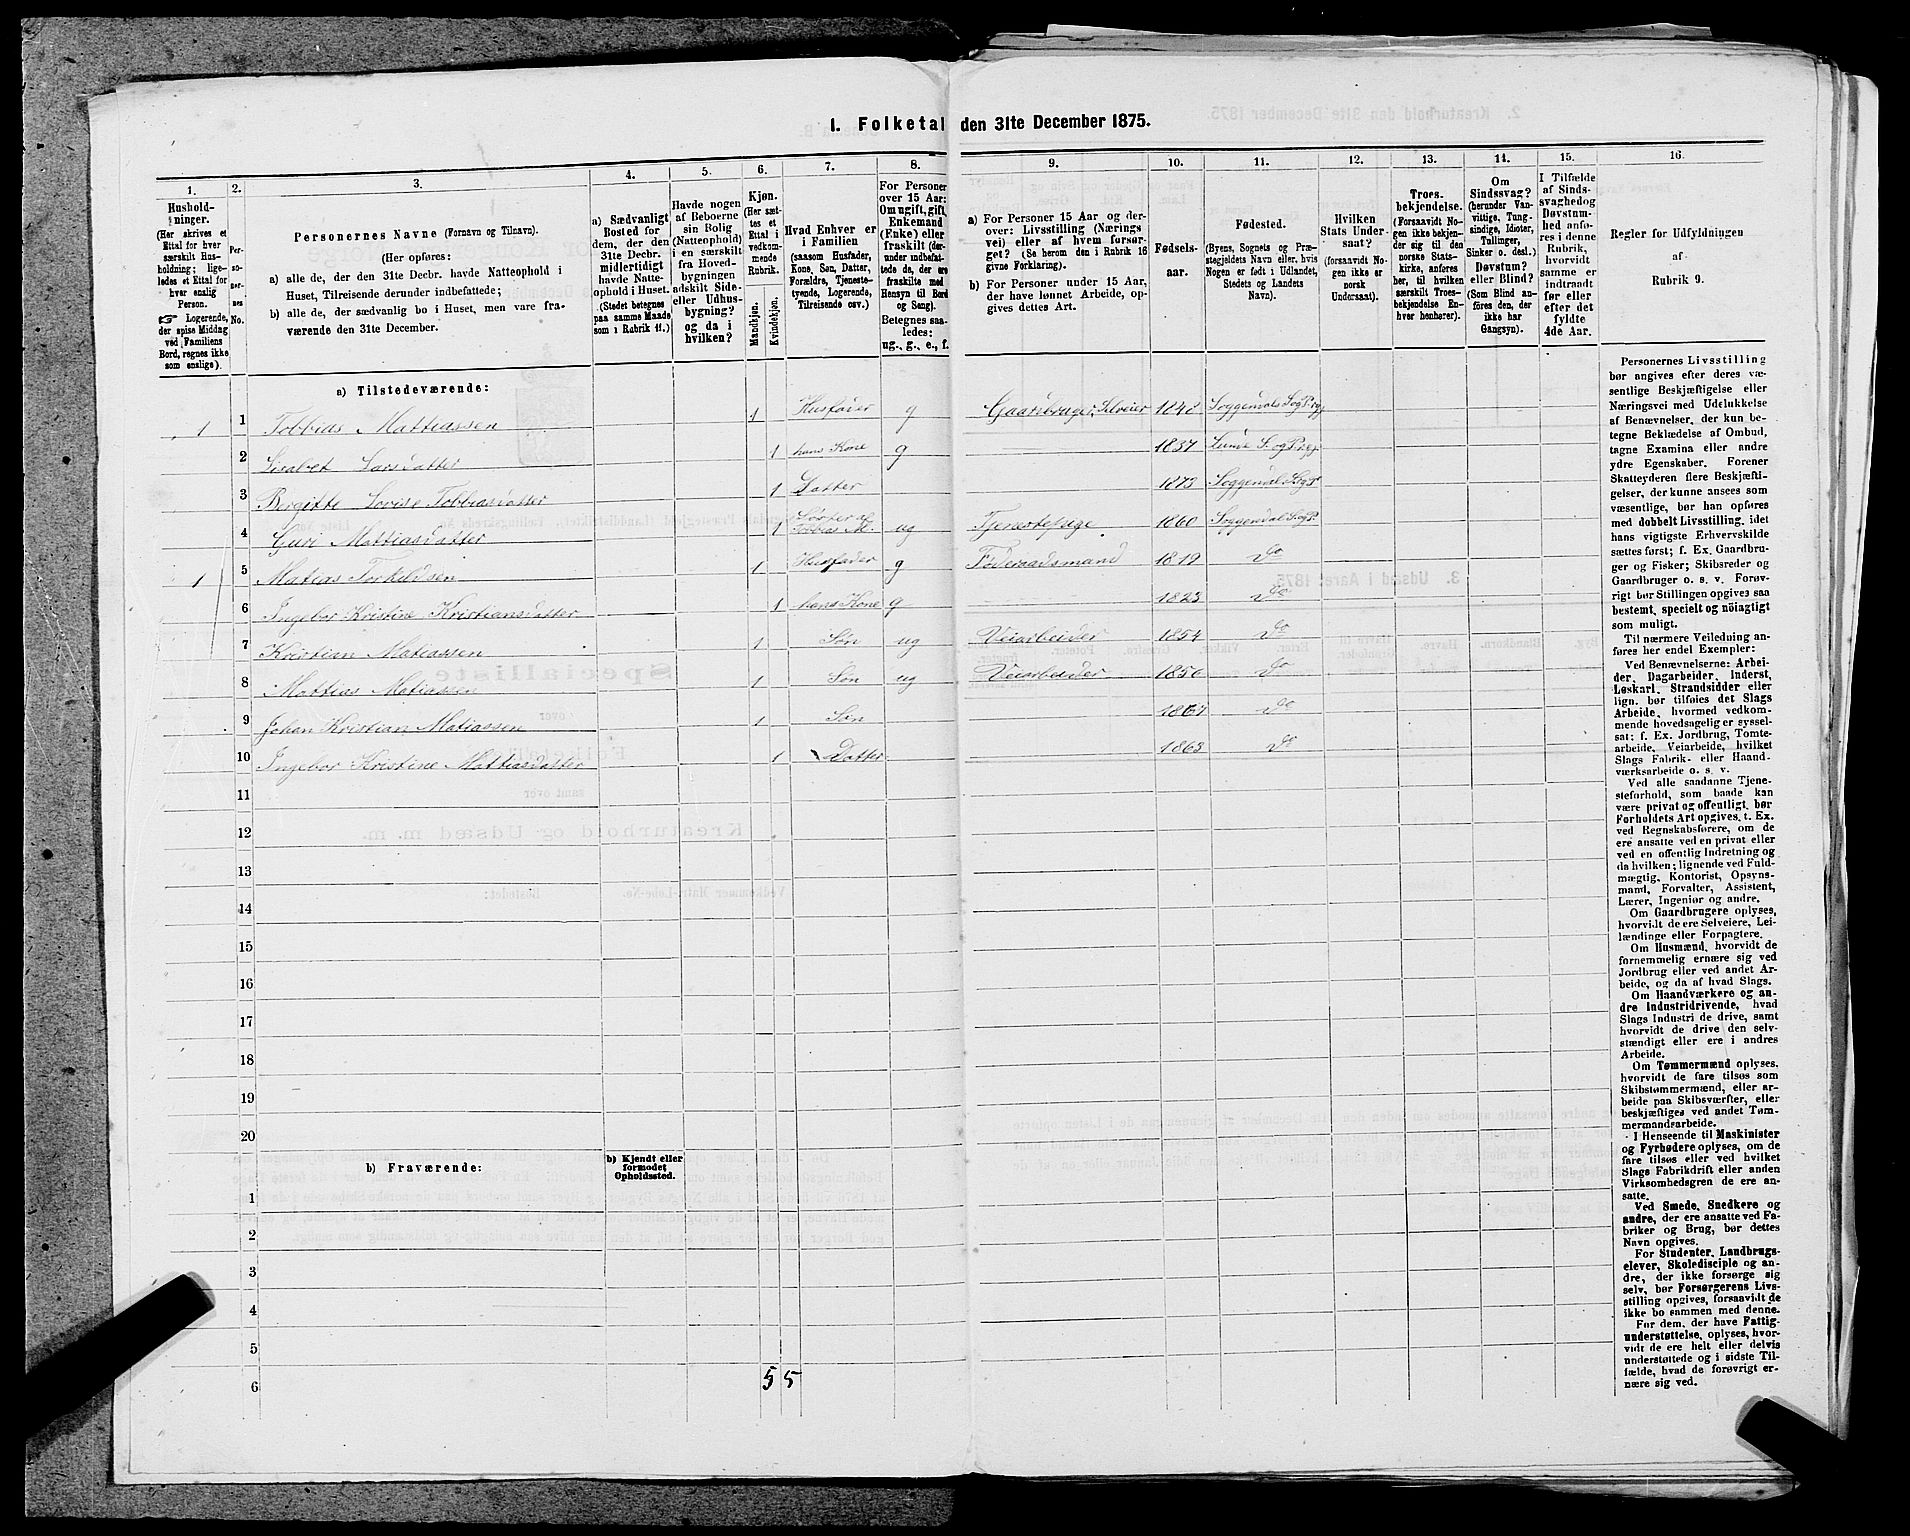 I. Folketal den 31te December 1875.
1. 2. 3. 4. 5. 6. 7. 8. 9. 10. 11. 12. 13. 14. 15. 16.
Hushold-
ninger.
(Her skrives et
Ettal for hver
særskilt Hus-
holdning; lige-
ledes et Ettal for
hver enslig
Person.
☞ Logerende,
der spise Middag
ved Familiens
Bord, regnes ikke
som enslige).
Per-
so-
ner-
nes
No.
Personernes Navne (Fornavn og Tilnavn).
(Her opføres:
a) alle de, der den 31te Decbr. havde Natteophold i
Huset, Tilreisende derunder indbefattede;
b) alle de, der sædvanlig bo i Huset, men vare fra-
værende den 31te December.
a) Sædvanligt
Bosted for
dem, der den
31te Decbr.
midlertidigt
havde Natte-
ophold i Huset.
(Stedet betegnes
paa samme Maade
som i Rubrik 11.)
Havde nogen
af Beboerne
sin Bolig
(Natteophold)
i en særskilt
fra Hoved-
bygningen
adskilt Side-
eller Udhus-
bygning?
og da i
hvilken?
Kjøn.
(Her sæt-
tes et
Ettal i
vedkom-
mende
Rubrik.
Mandkjøn.
Kvindekjøn.
Hvad Enhver er
i Familien
(saasom Husfader,
Kone, Søn, Datter,
Forældre, Tjeneste-
tyende, Logerende,
Tilreisende osv.)
For Personer
over 15 Aar:
Om ugift, gift,
Enkemand
(Enke) eller
fraskilt (der-
under indbefat-
tede de, der ere
fraskilte med
Hensyn til Bord
og Seng).
Betegnes saa-
ledes:
ug., g., e., f.
a) For Personer 15 Aar og der-
over: Livsstilling (Nærings
vei) eller af hvem forsør-
get? (Se herom den i Rubrik 16
givne Forklaring).
b) For Personer under 15 Aar,
der have lønnet Arbeide, op-
gives dettes Art.
Fødsels-
aar.
Fødested.
(Byens, Sognets og Præ-
stegjeldets Navn eller, hvis
Nogen er født i Udlandet,
Stedets og Landets
Navn).
Hvilken
Stats Under-
saat?
(forsaavidt No-
gen ikke er
norsk
Undersaat).
Troes-
bekjendelse.
(Forsaavidt No-
gen ikke bekjen-
der sig til den
norske Stats-
kirke, anføres
her, til hvilken
særskilt Troes-
bekjendelse En-
hver henhører).
Om
Sindssvag?
(herunder Van-
vittige, Tung-
sindige, Idioter,
Tullinger,
Sinker o. desl.)
Døvstum?
eller Blind?
(Som Blind an-
føres den, der
ikke har
Gangsyn).
I Tilfælde
af Sinds-
svaghed og
Døvstum-
hed anfø-
res i denne
Rubrik,
hvorvidt
samme er
indtraadt
før eller
efter det
fyldte
4de Aar.
Regler for Udfyldningen
af
Rubrik 9.
a) Tilstedeværende:
1 1 Tobbias Mattiassen 1 Husfader g Gaardbruger, Selveier 1842 Soggendals Sog P.rgj.
2 Lisabet Larsdatter 1 hans Kone g 1837 Lunde S. og P.rgj.
3 Bergitte Lovise Tobbiasdatter 1 Datter 1873 Soggendal S. og P
4 Guri Mattiasdatter 1 Tobbias M. ug Tjenestepige 1860 Soggendal S. og P.
1 5 Matias Torkildsen 1 Husfader g Føderaadsmand 1819 Do
6 Ingebor Kristine Kristiansdatter 1 hans Kone g 1823 Do
7 Kristian Matiassen 1 Søn ug Veiarbeider 1854 Do
8 Mattias Matiassen 1 Søn ug Veiarbeider 1856 Do
9 Johan Kristian Matiassen 1 Søn 1867 Do
10 Ingebor Kristine Mattiasdatter 1 Datter 1863 Do
11
12
13
14
15
16
17
18
19
20
b) Fraværende:
b) Kjendt eller
formodet
Opholdssted.
1
2
3
4
5
6
5 5
Personernes Livsstilling
bør angives efter deres væ-
sentlige Beskjæftigelse eller
Næringsvei med Udelukkelse
af Benævnelser, der kun be-
tegne Beklædelse af Ombud,
tagne Examina eller andre
ydre Egenskaber. Forener
Skatteyderen flere Beskjæfti-
gelser, der kunne ansees som
væsentlige, bør han opføres
med dobbelt Livsstilling, idet
hans vigtigste Erhvervskilde
sættes først; f. Ex. Gaardbru-
ger og Fisker; Skibsreder og
Gaardbruger o. s. v. Forøv-
rigt bør Stillingen opgives saa
bestemt, specielt og nøiagtigt
som muligt.
Til nærmere Veiledning an-
føres her endel Exempler:
Ved Benævnelserne: Arbei-
der, Dagarbeider, Inderst,
Løskarl, Strandsidder eller
lign. bør tilføies det Slags
Arbeide, hvormed vedkom-
mende hovedsagelig er syssel-
sat; f. Ex. Jordbrug, Tomte-
arbeide, Veiarbeide, hvilket
Slags Fabrik- eller Haand-
værksarbeide o. s. v.
Ved alle saadanne Tjene-
steforhold, som baade kan
være privat og offentligt, bør
Forholdets Art opgives, t. Ex.
ved Regnskabsførere, om de
ere ansatte ved en privat eller
ved en offentlig Indretning og
da hvilken; lignende ved Fuld-
mægtig, Kontorist, Opsyns-
mand, Forvalter, Assistent,
Lærer, Ingeniør og andre.
Om Gaardbrugere oplyses,
hvorvidt de ere Selveiere, Lei-
lændinge eller Forpagtere.
Om Husmænd, hvorvidt de
fornemmelig ernære sig ved
Jordbrug eller ved andet Ar-
beide, og da af hvad Slags.
Om Haandværkere og an-
dre Industridrivende, hvad
Slags Industri de drive, samt
hvorvidt de drive den selv-
stændigt eller ere i andres
Arbeide.
Om Tømmermænd oplyses,
hvorvidt de fare tilsøs som
Skibstømmermænd, eller ar-
beide paa Skibsværfter, eller
beskjæftiges ved andet Tøm-
mermandsarbeide.
I Henseende til Maskinister
og Fyrbødere oplyses, om de
fare tilsøs eller ved hvilket
Slags Fabrikdrift eller anden
Virksomhedsgren de ere an-
satte.
Ved Smede, Snedkere og
andre, der ere ansatte ved Fa-
briker og Brug, bør dettes
Navn opgives.
For Studenter, Landbrugs-
elever, Skoledisciple og an-
dre, der ikke forsørge sig
selv, bør Forsørgerens Livs-
stilling opgives, forsaavidt de
ikke bo sammen med denne.
For dem, der have Fattig-
understøttelse, oplyses, hvor-
vidt de ere helt eller delvis
understøttede og i sidste Til-
fælde, hvad de forøvrigt er-
nære sig ved.